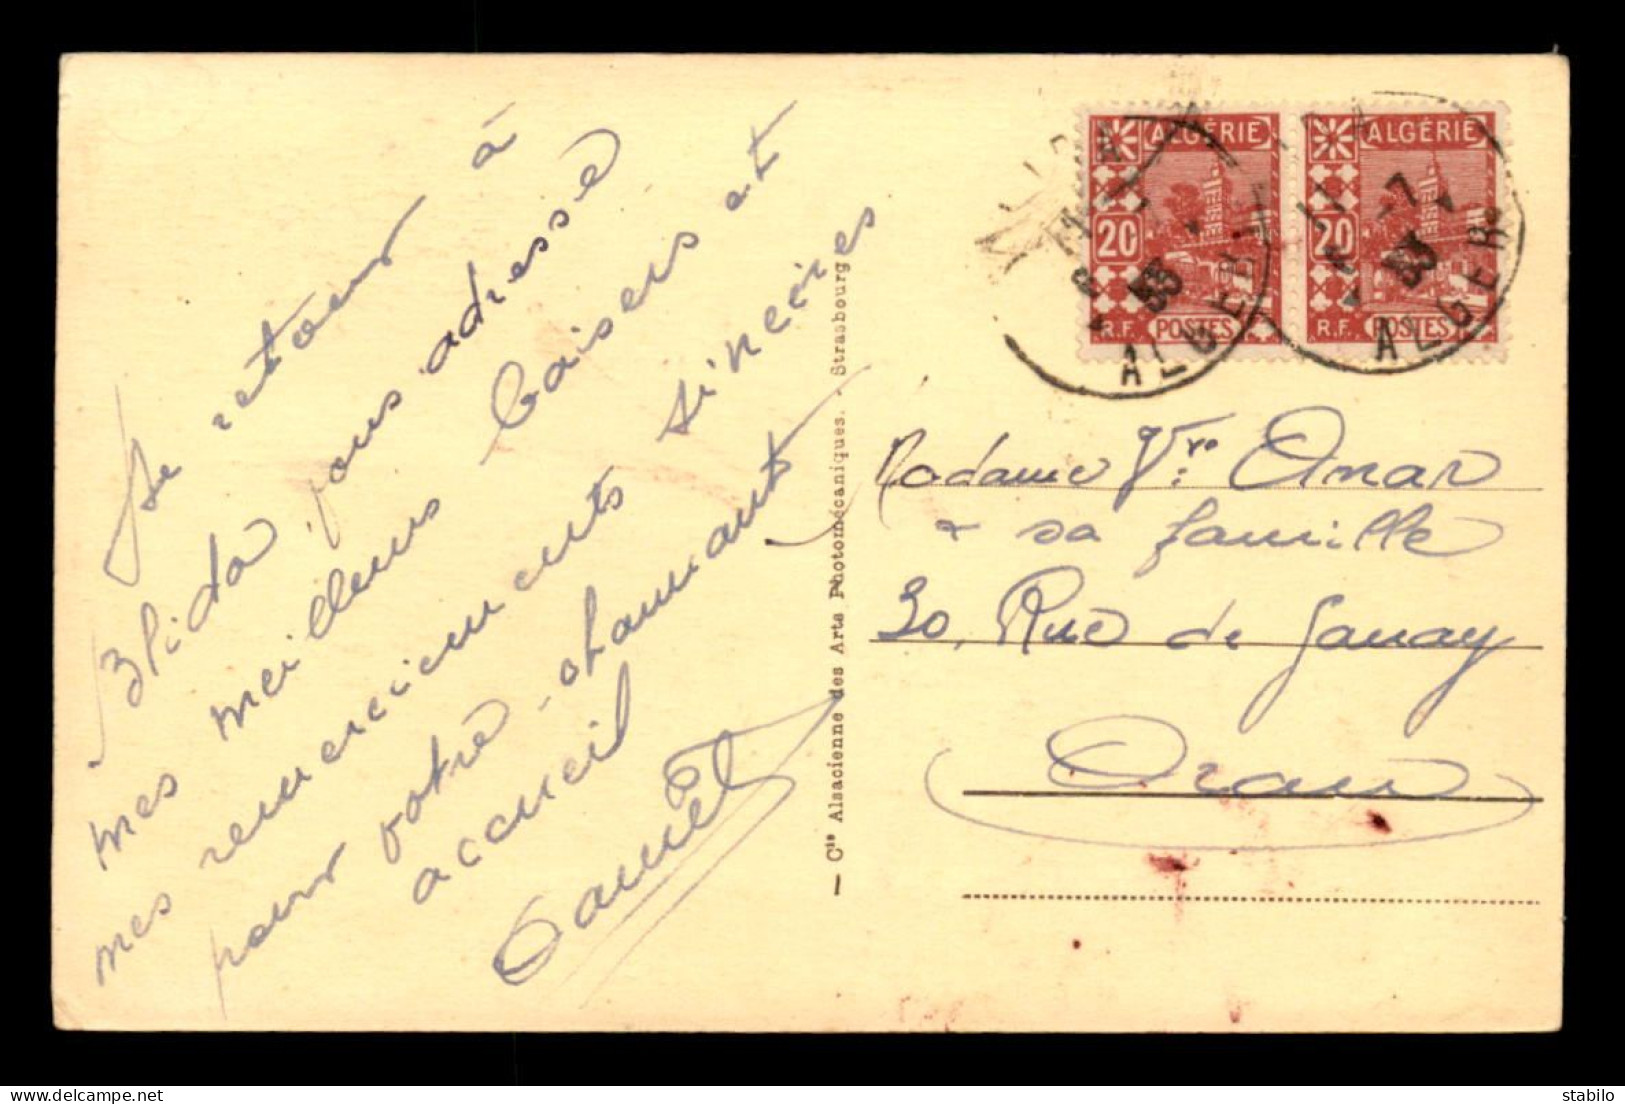 De retour à
Blida, vous adresse
mes meilleurs baisers et
mes remerciements sincères
pour votre charmant
accueil
Cie Alsacienne des Arts Photomécaniques. - Strasbourg
ALGÉRIE
20
R.F. POSTES
ALGÉRIE
20
R.F. POSTES
11 -7
33
ALGER
33
ALGER
Madame Vve Omar
& sa famille
30, Rue de Ganay
Oran
stabilo